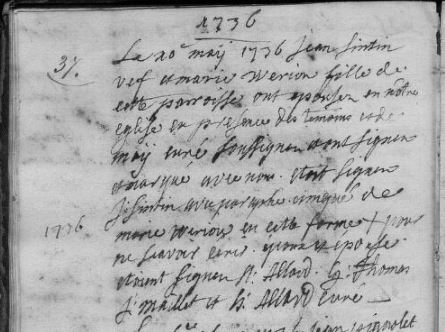 1736
37.
La 20e maij 1736 jean sintin
vef et marie werion fille de
cette parroisse ont epousez en nôtre
eglise en presence des temoins et de
moij curé soussignez ont signez
et marqué avec nous. etoit signez
J. sintin avec paraphe. marque de
1736
marie werion en cette forme + pour
ne scavoir ecrire. et epouse.
etoient signez N. Allard. G. Thomas
J. mallet et h. Allard curé
jean